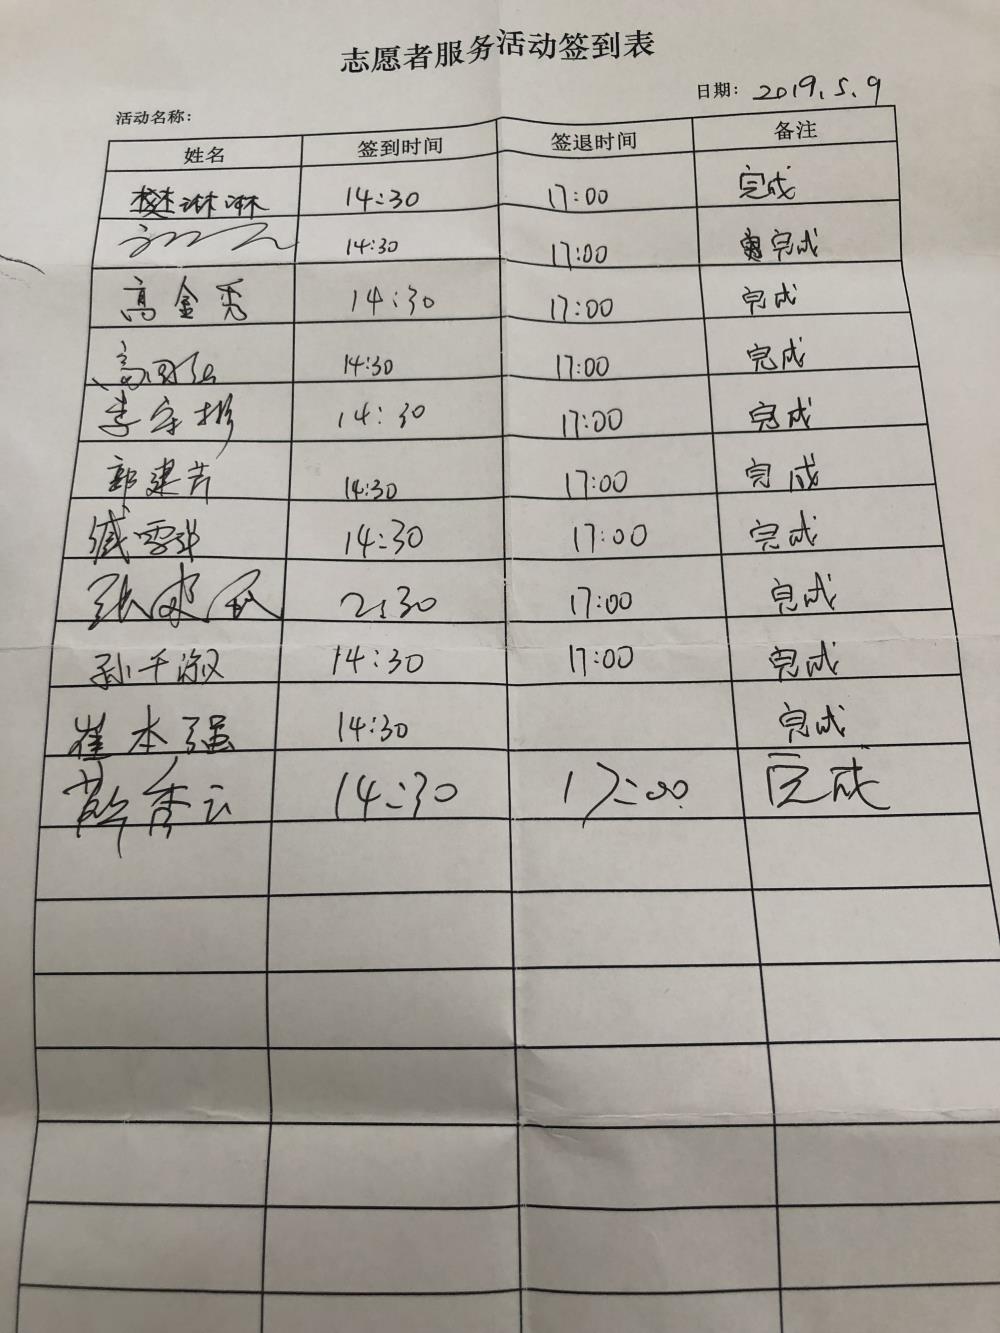 志愿者服务活动签到表
日期: 2019.5.9
活动名称:
姓名 签到时间 签退时间 备注
樊淋淋 14:30 17:00 完成
14:30 17:00 完成
高金秀 14:30 17:00 完成
14:30 17:00 完成
李守彬 14:30 17:00 完成
郭建芳 14:30 17:00 完成
臧雪 14:30 17:00 完成
张 2:30 17:00 完成
孙千淑 14:30 17:00 完成
崔本强 14:30 完成
薛秀云 14:30 17:00 完成